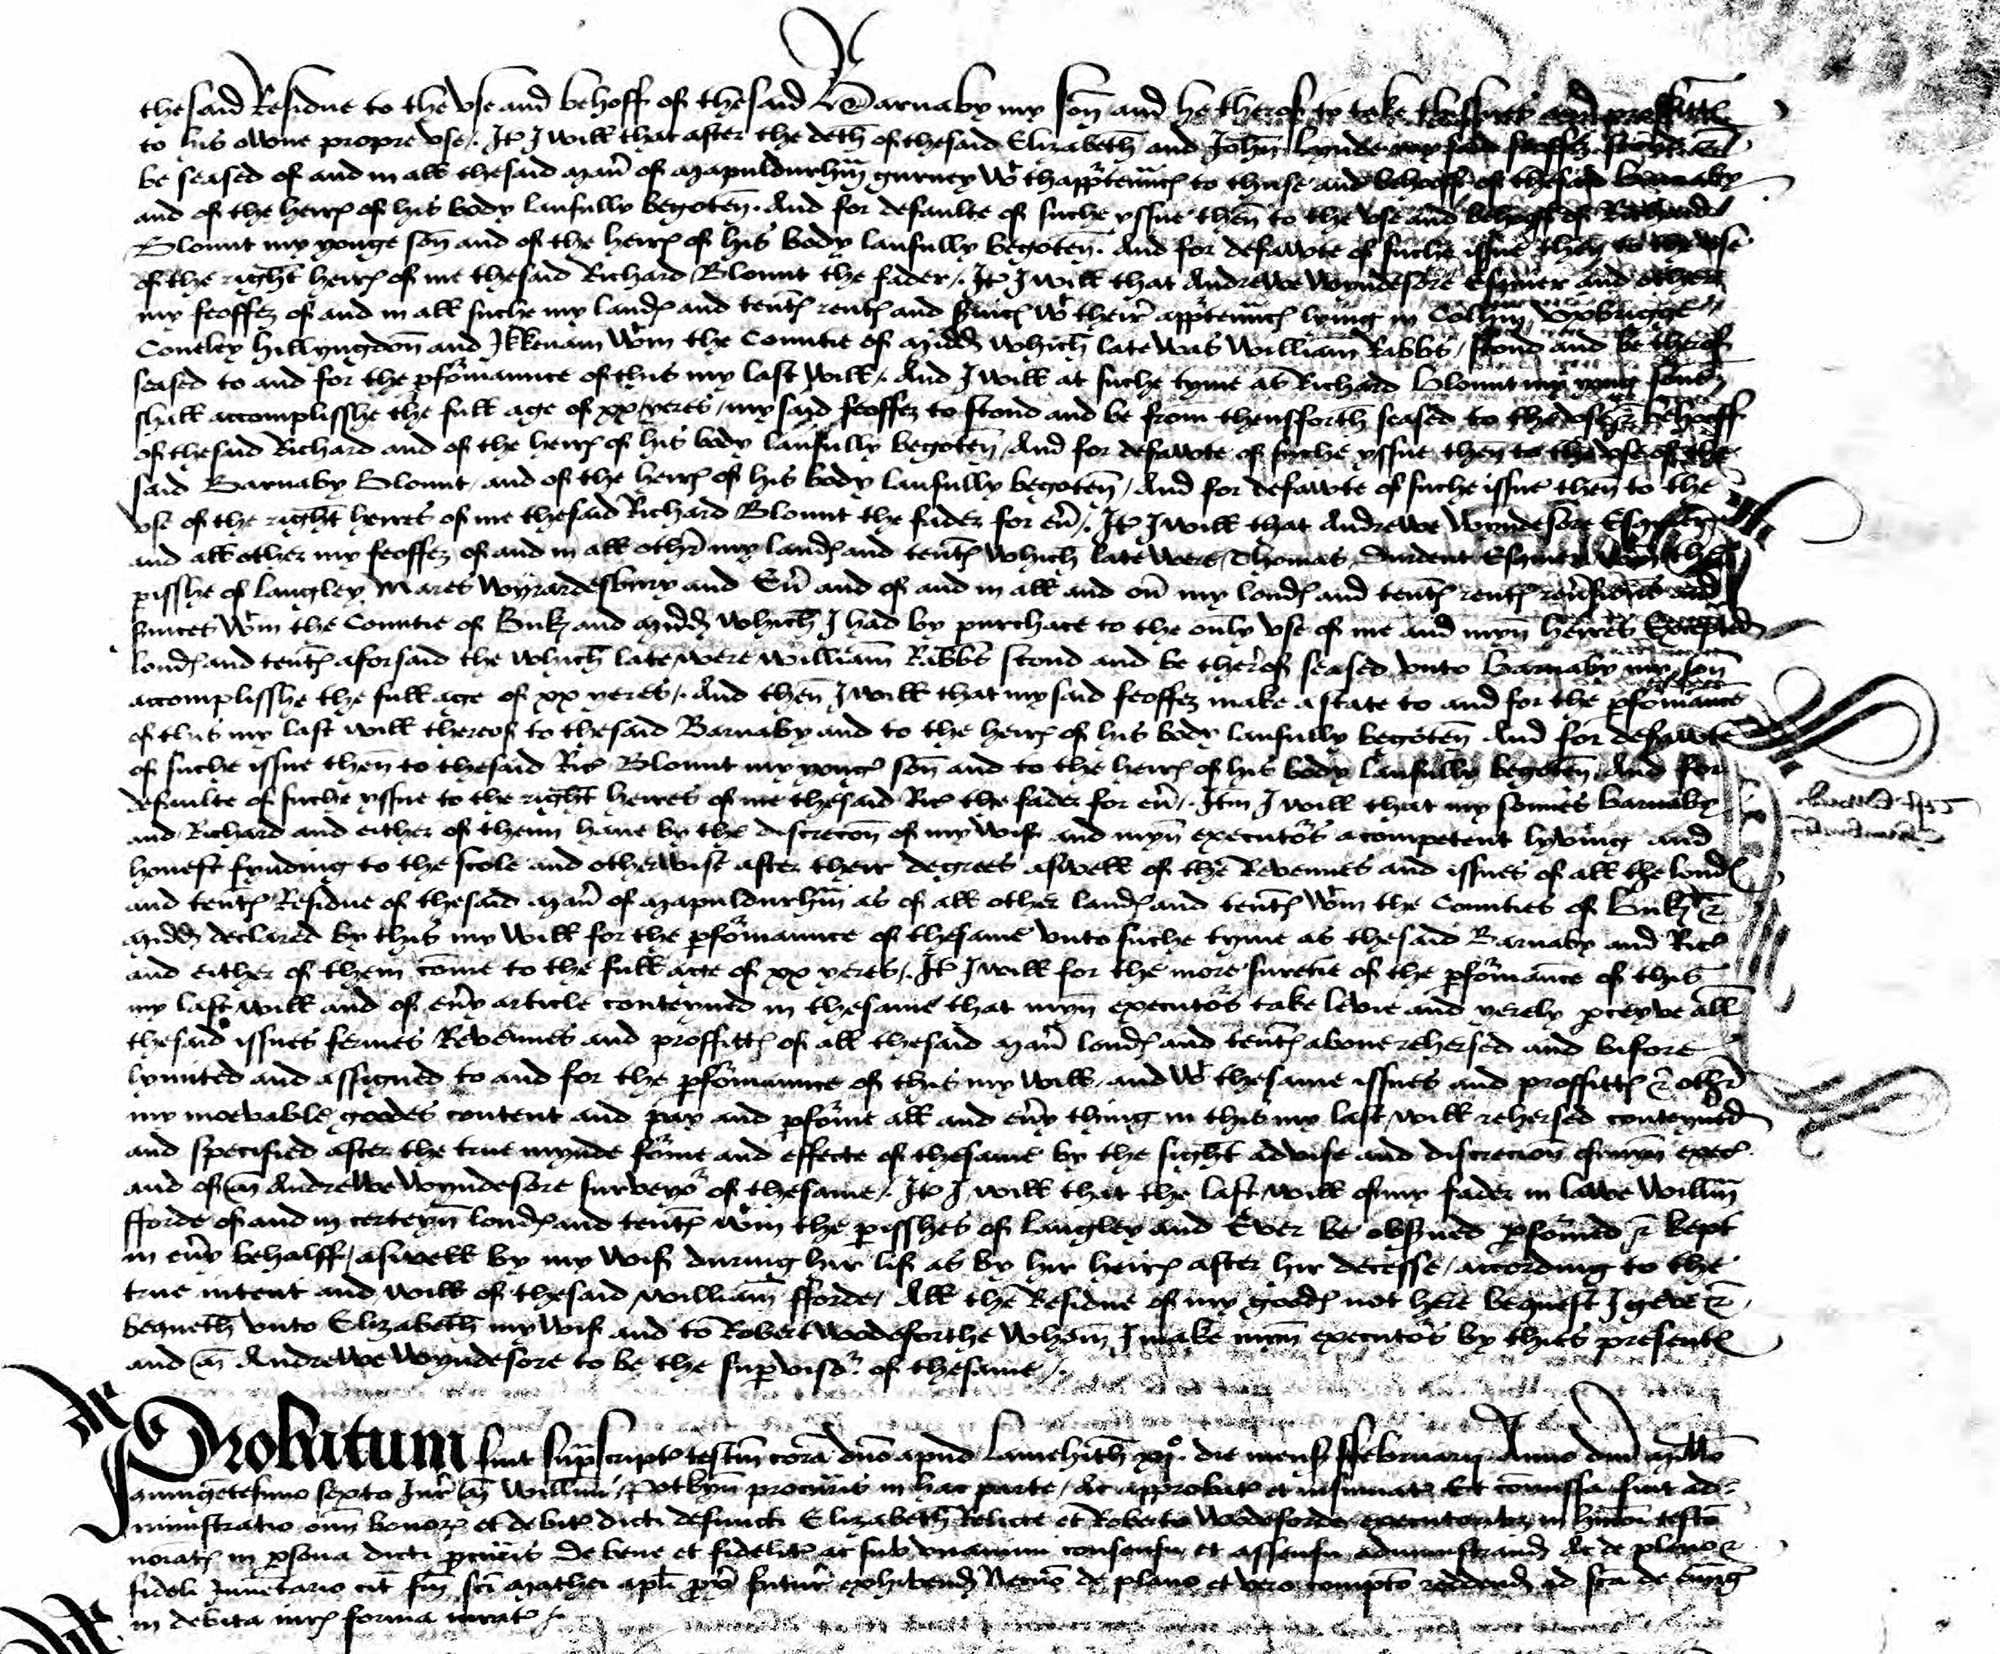 thesaid Residue to the vse and behoff of thesaid Barnaby my son̄ and he therof to take thissuez and proffittꝭ
to his owne propre vse /. It̄ I will that after the deth of thesaid Elizabeth and John̄ Lynde my said feoffez stond and
be seased of and in all thesaid Man̄ of Mapuldurh̄m gurney wt thapp̄rten̄ncꝭ to thuse and behoff of thesaid Barnaby
and of the heirꝭ of his body laufully begoten̄. And for defaulte of suche yssue then̄ to the vse and behoff of Richard
Blount my yonge son̄ and of the heirꝭ of his body laufully begoten̄. And for defawte of suche issue then̄ to the vse
of the right heirꝭ of me thesaid Richard Blount the fader /. It̄ I will that Andrewe Wyndesore Esquier and other
my feoffez of and in all suche my landꝭ and tent̄ꝭ rentꝭ and s̄uicꝭ wt their app̄rten̄ncꝭ lying in Colh̄m Vxbrigge
Coueley hillyngdon̄ and Ikkenam wtin the Countie of Midd̄ which late was William̄ Rabbs / stond and be therof
seased to and for the p̄fo̅rmaunce of this my last will /. And I will at suche tyme as Richard Blount my yong sone
shall accomplisshe the full age of xx yeres / my said feoffez to stond and be from thensforth seased to the vse & behoff
of thesaid Richard and of the heirꝭ of his body laufully begoten̄ / And for defawte of suche yssue then̄ to the vse of the
said Barnaby Blount / and of the heirꝭ of his body laufully begoten̄ / And for defawte of suche issue then̄ to the
vse of the right heires of me thesaid Richard Blount the fader for eū /. It̄ I will that Andrewe Wyndesore Esquier
and all other my feoffez of and in all oth̄r my landꝭ and tent̄ꝭ which late were Thomas Durdent Esquier wtin the
p̄isshe of Langley Mares Wyrardesbury and Eu̅ and of and in all and ou̅ my londꝭ and tent̄ꝭ rentꝭ reu̅sions and
s̄uices wtin the Countie of Buk̄ and Midd̄ which I had by purchace to the only vse of me and myn̄ heires Excepted
londꝭ and tent̄ꝭ aforsaid the which late were William̄ Rabbs stond and be therof seased vnto Barnaby my son̄
accomplisshe the full age of xx yeres /. And then̄ I will that my said feoffez make astate to and for the p̄fo̅rmance
of this my last will therof to thesaid Barnaby and to the heirꝭ of his body laufully begoten̄ And for defawte
of suche issue then̄ to thesaid Ric̄ Blount my yonḡ son̄ and to the heirꝭ of his body laufully begoten̄ And for
defaulte of suche yssue to the right heires of me thesaid Ric̄ the fader for eu̅ /. Itm̄ I will that my sonnes Barnaby
and Richard and either of them haue by the discrecon̄ of my wif and myn̄ executo̅rs a competent lyving and
honest fynding to the scole and otherwise after their degrees aswell of the Revenues and issues of all the londꝭ
and tent̄ꝭ Residue of thesaid Man̄ of Mapuldurh̄m as of all other landꝭ and tent̄ꝭ wtin the Counties of Buk̄ &
Midd̄ declared by this my will for the p̄fo̅rmaunce of thesame vnto suche tyme as thesaid Barnaby and Ric̄
and either of them come to the full age of xx yeres /. It̄ I will for the more suretie of the p̄fo̅rmance of this
my last will and of eu̅y article conteyned in thesame that myn̄ executo̅rs take levie and yerely p̄ceyve all
thesaid issues fermes Revenues and proffittꝭ of all thesaid Man̄ londꝭ and tent̄ꝭ aboue rehersed and bifore
lymited and assigned to and for the p̄fo̅rmaunce of this my will / and wt thesame issues and proffittꝭ & oth̄r
my moevable goodes content and pay and p̄fo̅rme all and eu̅y thing in this my last will rehersed conteyned
and specified after the true mynde fo̅rme and effecte of thesame by the sight advise and discrecion̄ of myn̄ exec̄
and of m̄ Andrewe Wyndesore surveyo̅r of thesame /. It̄ I will that the last will of my fader in lawe Will̄m
fforde of and in certeyn̄ londꝭ and tent̄ꝭ wtin the p̄isshes of Langley and Ever be obs̄ued p̄fo̅rmed & kept
in eu̅y behalff / aswell by my wif during hir lif as by hir heirꝭ after hir decesse / according to the
true intent and will of thesaid William̄ fforde / All the Residue of my goodꝭ not here bequest I geve &
bequeth vnto Elizabeth my wif and to Robert Wodeforthe whom̄ I make myn̄ executo̅rs by thies presentꝭ
and m̄ Andrewe Wyndesore to be the sup̄viso̅r of thesame /.
Probatum fuit sup̄script̄ testm̄ cora̅ dn̄o apud Lamehith xijo die mens̄ ffebruarij Anno dn̄i Mill̄mo
quingētesimo sexto Jur̄ m̄ Will̄mi Potkyn̄ procur̄is in hac parte / Ac approbat̄ et insinuat̄ Et com̄issa fuit ad-
ministratio om̄i bonorꝝ et debit̄ dicti defuncti Elizabeth Relicte et Roberto Wodeforde executoribꝫ in hmōi testō
noiatꝭ in p̄sona dicti p̄cur̄is De bene et fidelit̄ ac sub vnanimi consensu et assensu administrand̄ Ac de pleno &
fideli Inuētario cit̄ fm̄ sci̅ Mathei apl̄i p̄x̄ futur̄ exhibend̄ Necnō de plano et vero compto reddend̄ ad sc̄a dei eu̅ng̅
in debita iurꝭ forma iurat̄ /.